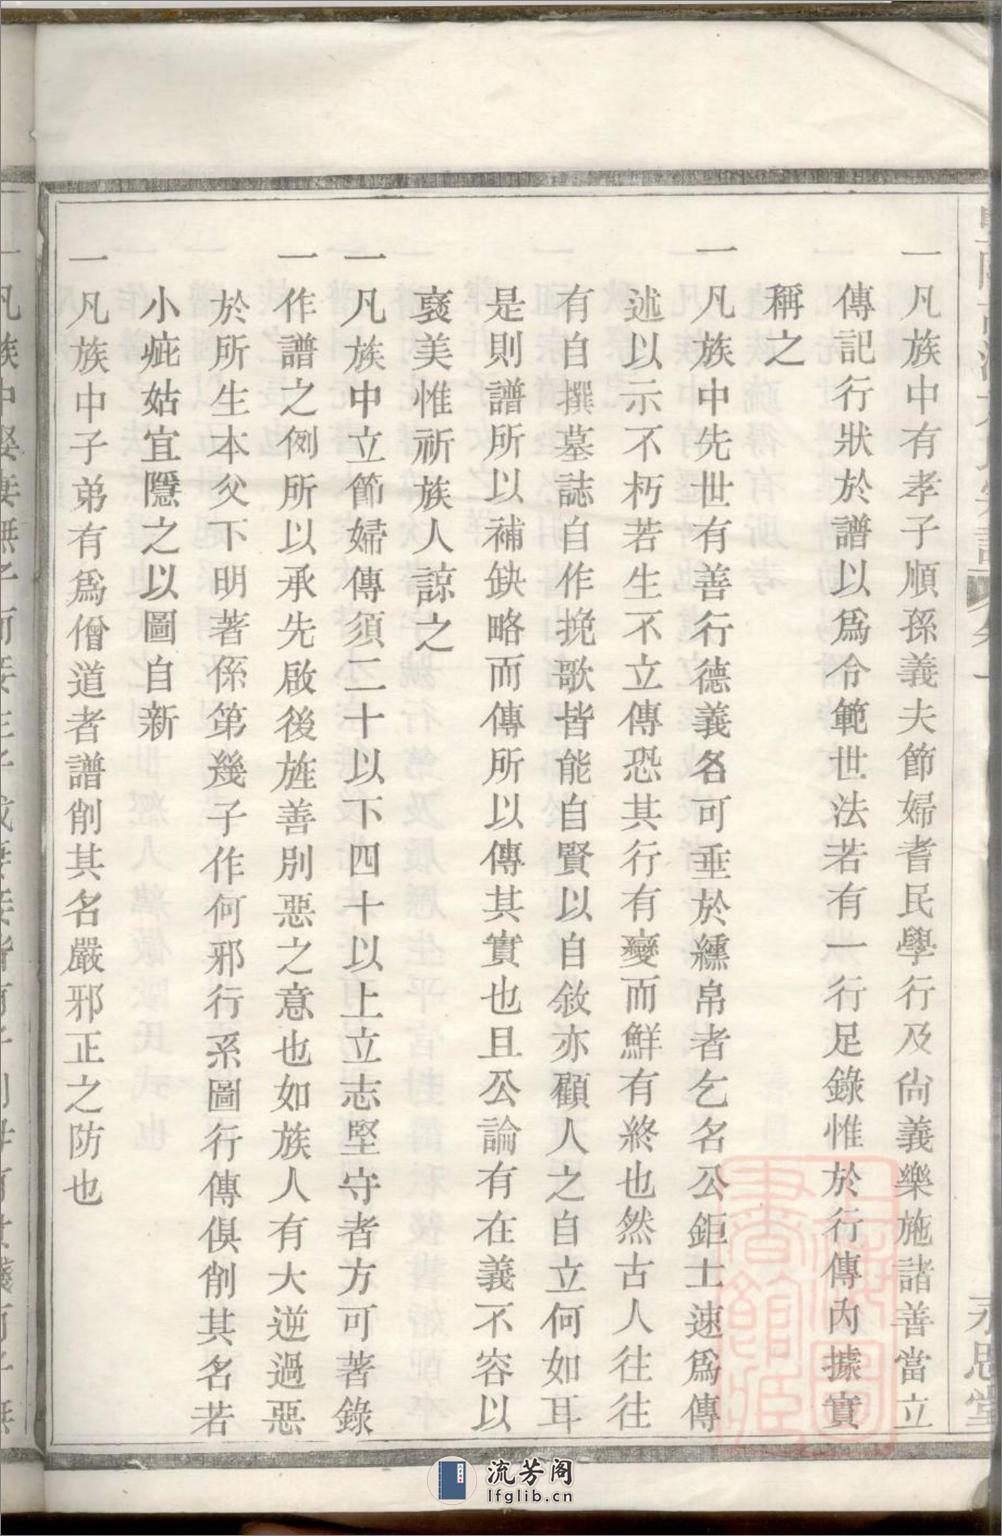 一凡族中有孝子順孫義夫節婦耆民學行及尙義樂施諸善當立
傳記行狀於譜以爲令範世法若有一行足錄惟於行傳內據實
稱之
一凡族中先世有善行德義各可垂於纁帛者乞名公鉅士速爲傳
述以示不朽若生不立傳恐其行有變而鮮有終也然古人往往
有自撰墓誌自作挽歌皆能自賢以自敘亦顧人之自立何如耳
是則譜所以補缺略而傳所以傳其實也且公論有在義不容以
襃美惟祈族人諒之
一凡族中立節婦傳須二十以下四十以上立志堅守者方可著錄
一作譜之例所以承先啟後旌善別惡之意也如族人有大逆過惡
於所生本父下明著係第幾子作何邪行系圖行傳俱削其名若
小疵姑宜隱之以圖自新
一凡族中子弟有爲僧道者譜削其名嚴邪正之防也
永思堂
上海圖書館藏
流芳阁
lfglib.cn